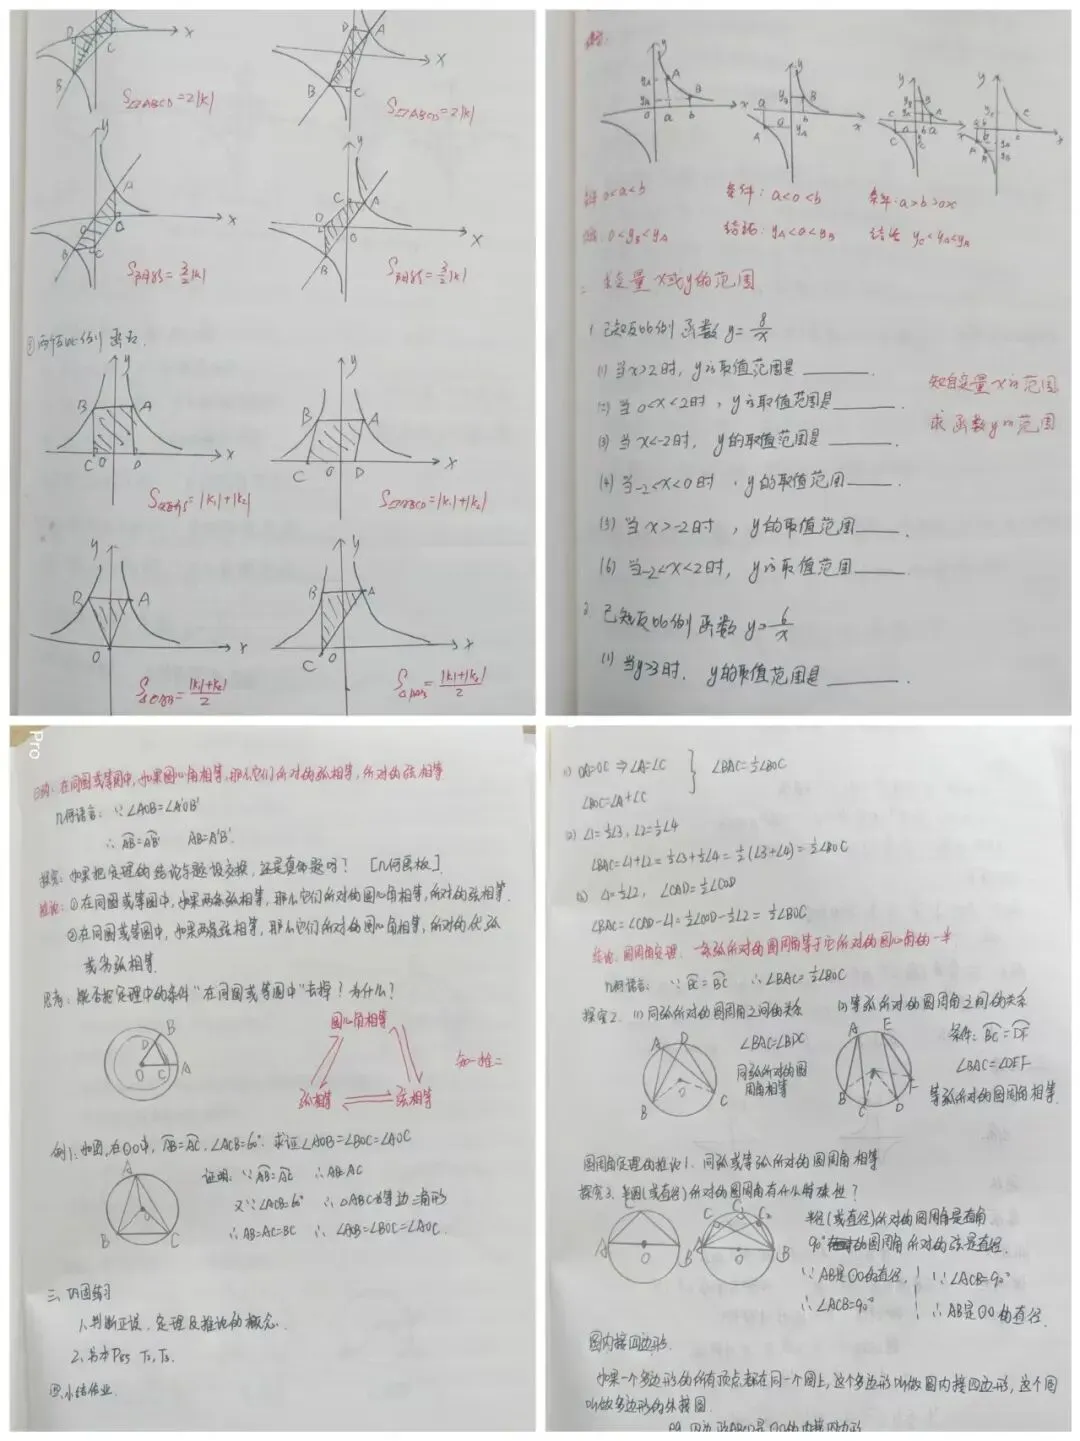 S▱ABCD=2|k|
S▱ABCD=2|k|
S阴影=3/2|k|
S阴影=3/2|k|
②两个反比例函数.
S矩形=|k₁|+|k₂|
S▱ABCD=|k₁|+|k₂|
S△OAB=|k₁|+|k₂|/2
S△ABC=|k₁|+|k₂|/2
条件 0<a<b
条件: a<0<b
条件: a>b>0>c
结论: 0<yB<yA
结论: yA<0<yB
结论 yC<yA<yB
二 求变量x或y的范围
1. 已知反比例函数 y=8/x
(1) 当x>2时, y的取值范围是______.
(2) 当0<x<2时, y的取值范围是______.
(3) 当x<-2时, y的取值范围是______.
(4) 当-2<x<0时, y的取值范围______.
(5) 当x>-2时, y的取值范围______.
(6) 当-2<x<2时, y的取值范围______.
知自变量x的范围
求函数y的范围
2. 已知反比例函数 y=6/x
(1) 当y>3时, y的取值范围是______.
Pro
在同圆或等圆中, 如果圆心角相等, 那么它们所对的弧相等, 所对的弦相等
几何语言: ∵∠AOB=∠A'OB'
∴ AB=A'B' AB=A'B'.
探究: 如果把定理的结论与题设交换, 还是真命题吗? [几何画板].
推论: ①在同圆或等圆中, 如果两条弧相等, 那么它们所对的圆心角相等, 所对的弦相等.
②在同圆或等圆中, 如果两条弦相等, 那么它们所对的圆心角相等, 所对的优弧
或劣弧相等.
思考: 能否把定理中的条件"在同圆或等圆中"去掉? 为什么?
圆心角相等
弧相等
弦相等
知一推二
例1: 如图, 在⊙O中, AB=AC, ∠ACB=60°. 求证∠AOB=∠BOC=∠AOC
证明: ∵AB=AC ∴AB=AC
又∵∠ACB=60° ∴△ABC为等边三角形
∴AB=AC=BC ∴∠AOB=∠BOC=∠AOC.
三、巩固练习
1. 判断正误, 定理及推论的概念.
2. 书本P85 T2, T3.
四、小结作业.
(1) OA=OC ⇒∠A=∠C
∠BOC=∠A+∠C
∠BAC=½∠BOC
(2) ∠1=½∠3, ∠2=½∠4
∠BAC=∠1+∠2=½∠3+½∠4=½(∠3+∠4)=½∠BOC
(3) ∠1=½∠2, ∠CAD=½∠COD
∠BAC=∠CAD-∠1=½∠COD-½∠2=½∠BOC.
结论: 圆周角定理: 一条弧所对的圆周角等于它所对的圆心角的一半
几何语言: ∵BC=BC ∴∠BAC=½∠BOC
探究2. (1) 同弧所对的圆周角之间的关系
∠BAC=∠BDC
同弧所对的圆
周角相等
(2) 等弧所对的圆周角之间的关系
条件: BC=DF
∠BAC=∠DEF
等弧所对的圆周角相等.
圆周角定理的推论1. 同弧或等弧所对的圆周角相等
探究3. 半圆(或直径)所对的圆周角有什么特殊性?
半径(或直径)所对的圆周角是直角
90°的圆周角所对的弦是直径.
∵AB是⊙O的直径,
∴∠ACB=90°
∵∠ACB=90°
∴AB是⊙O的直径.
圆内接四边形.
如果一个多边形的所有顶点都在同一个圆上, 这个多边形叫做圆内接四边形, 这个圆
叫做多边形的外接圆.